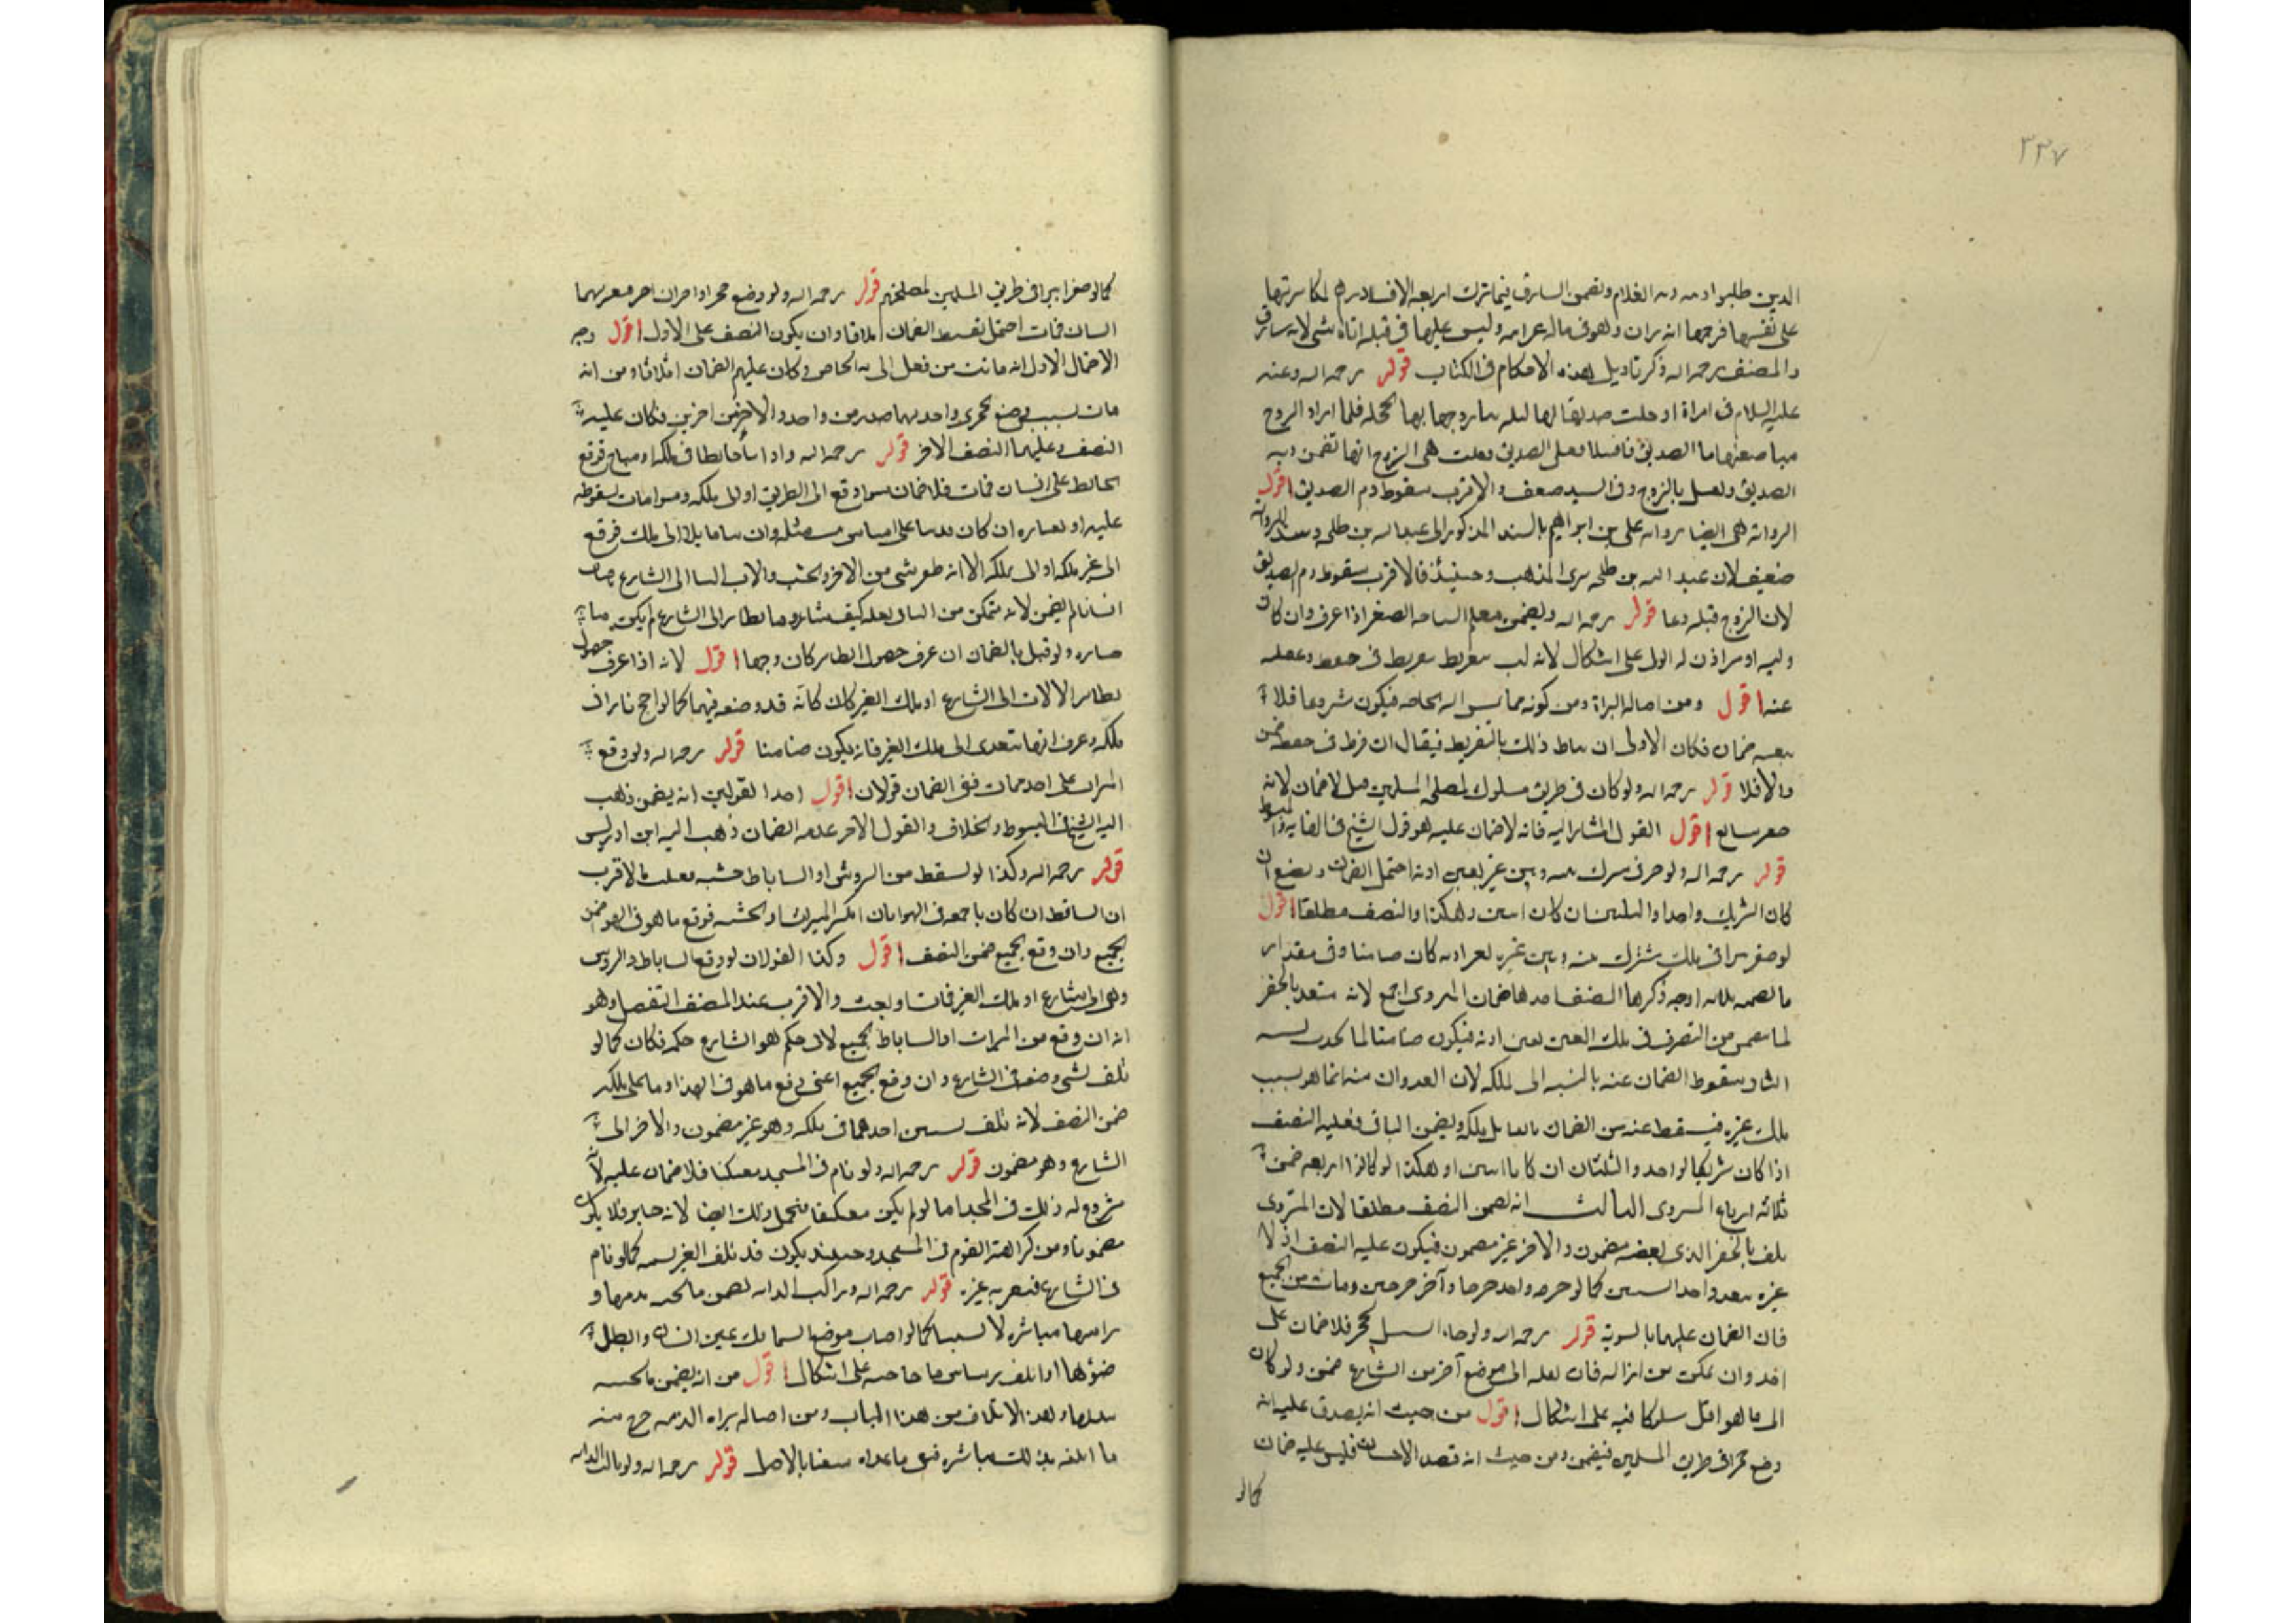 ٣٣٧
الدين طلبوا دمه دية الغلام ويضمن السارق فيما ترك اربعة الاف درهم لمكابرتها
على نفسها فرجها انه زان وهو في ماله غرامة وليس عليها في قتله اياه شي لانه سارق
والمصنف رحمه الله ذكر تاويل هذه الاحكام في الكتاب قوله رحمه الله وعنه
عليه السلام في امراة ادخلت صديقا لها ليلة بنا زوجها بها الحجلة فلما اراد الزوج
مباضعتها ثار الصديق فاقتتلا فقتل الصديق فقتلت هي الزوج انها تضمن دية
الصديق وتقتل بالزوج وفي السند ضعف والاقرب سقوط دم الصديق اقول
الرواية هي ايضا رواية علي بن ابراهيم بالسند المذكور الى عبد الله بن طلحة وسند الرواية
ضعيف لان عبد الله بن طلحة المذهب وحينئذ فالاقرب سقوط دم الصديق
لان الزوج قتله دفعا قوله رحمه الله ويضمن معلم السباحة الصغير اذا غرق وان كان
وليه او من اذن له الولي على اشكال لانه تلف بتفريطه في حفظه وغفلته
عنه اقول ومن اصالة البراة ومن كونه مما الحاجة فيكون مشروعا فلا
يتعقبه ضمان فكان الاولى ان يناط ذلك بالتفريط فيقال ان فرط في حفظه ضمن
والا فلا قوله رحمه الله ولو كان في طريق مسلوك لمصلحة المسلمين قيل لا ضمان لانه
حفر سايغ اقول القول المشار اليه فانه لا ضمان عليه هو قول الشيخ في النهاية والمبسوط
قوله رحمه الله ولو حفر في مشترك بينه وبين غيره بغير اذنه احتمل الضمان ونصفه ان
كان الشريك واحدا والثلثين ان كان اثنين وهكذا والنصف مطلقا اقول
لو حفر بيرا في ملك مشترك بينه وبين غيره بغير اذنه كان ضامنا وفي مقدار
ما يضمنه ثلاثة اوجه ذكرها المصنف احدها ضمان المتردي اجمع لانه متعد بالحفر
من التصرف في ملك الغير بغير اذنه فيكون ضامنا لما يحدث بسببه
الثاني سقوط الضمان عنه بالنسبة الى ملكه لان العدوان منه انما هو بسبب
ملك غيره فيسقط عنه من الضمان ما قابل ملكه ويضمن الباقي فعليه النصف
اذا كان شريكا لواحد والثلثان ان كانا اثنين او هكذا لو كانوا اربعة ضمن
ثلاثة ارباع المتردي الثالث انه يضمن النصف مطلقا لان المتردي
تلف بالحفر الذي بعضه مضمون والاخر غير مضمون فيكون عليه النصف اذ لا
عبرة بتعدد احد السببين كما لو جرحه واحد جرحا وآخر جرحين ومات من الجميع
فان الضمان عليهما بالسوية قوله رحمه الله ولو جاء السيل بحجر فلا ضمان على
احد وان تمكن من ازالته فان نقله الى موضع آخر من الشارع ضمن ولو كان
الى ما هو اقل سلوكا ففيه على اشكال اقول من حيث انه يصدق عليه انه
وضع حجرا في طريق المسلمين فيضمن ومن حيث انه قصد الاحسان فليس عليه ضمان
كما لو
كما لو حفر بيرا في طريق المسلمين لمصلحتهم قوله رحمه الله ولو وضع حجرا واخران اخر فعثر بهما
انسان فمات احتمل تقسيط الضمان اثلاثا وان يكون النصف على الاول اقول وجه
الاحتمال الاول انه مات من فعل الثلاثة وكان عليهم الضمان اثلاثا ومن انه
مات بسبب وضع حجرين واحد منهما صدر من واحد والاخر من اخرين فكان عليه
النصف وعليهما النصف الاخر قوله رحمه الله واذا بنا حائطا في ملكه او مباح فوقع
الحائط على انسان فمات فلا ضمان سواء وقع الى الطريق او الى ملكه وسواء مات بسقوطه
عليه او بغباره ان كان بناه على اساس مثله وان بناه مايلا الى ملكه فوقع
الى غير ملكه او الى ملكه الا انه طفر شي من الاجر والخشب والات البنا الى الشارع فاصاب
انسانا لم يضمن لانه متمكن من البنا في ملكه كيف شاء وما تطاير الى الشارع لم يكن
باختياره ولو قيل بالضمان ان عرف حصول التطاير كان وجها اقول لانه اذا عرف حصول
تطاير الالات الى الشارع او ملك الغير كان كانه قد وضعه فيهما كما لو اجج نارا في
ملكه وعرف انها تتعدى الى ملك الغير فانه يكون ضامنا قوله رحمه الله ولو وقع
الميزاب على احد فمات ففي الضمان قولان اقول احد القولين انه يضمن ذهب
اليه الشيخ في المبسوط والخلاف والقول الاخر عدم الضمان ذهب اليه ابن ادريس
قوله رحمه الله وكذا لو سقط من الروشن او الساباط خشبة فقتلت والاقرب
ان الساقط ان كان باجمعه في الهواء بان انكسر الميزاب او الخشبة فوقع ما هو في الهواء ضمن
الجميع وان وقع الجميع ضمن النصف اقول وكذا القولان لو وقع الساباط والروشن
وهو الى الشارع او ملك الغير فمات او تعيب والاقرب عند المصنف التفصيل وهو
انه ان وقع من الميزاب او الساباط الجميع لان حكم هواء الشارع حكمه فكان كما لو
تلف بشي وضعه في الشارع وان وقع الجميع اعني وقع ما هو في الهواء وما على ملكه
ضمن النصف لانه تلف بسببين احدهما في ملكه وهو غير مضمون والاخر الى
الشارع وهو مضمون قوله رحمه الله ولو نام في المسجد معتكفا فلا ضمان عليه لانه
مشروع له ذلك في المسجد اما لو لم يكن معتكفا فيحتمل ذلك ايضا لانه جايز فلا يكون
مضمونا ومن كراهة النوم في المسجد وحينئذ يكون قد تلف الغير بسببه كما لو نام
في الشارع فتعثر به غيره قوله رحمه الله وراكب الدابة يضمن ما تجنيه بيديها و
براسها مباشرة لا تسببا كما لو اصاب موضع السنابك عين انسان وابطل
ضوءها او اتلف برشاش ما خاضه على اشكال اقول من انه يضمن ما تجنيه
بيديها وهذا الاتلاف من هذا الباب ومن اصالة براءة الذمة خرج منه
ما اتلفه بذلك مباشرة فيبقى ما عداه منفيا بالاصل قوله رحمه الله ولو بالت الدابة